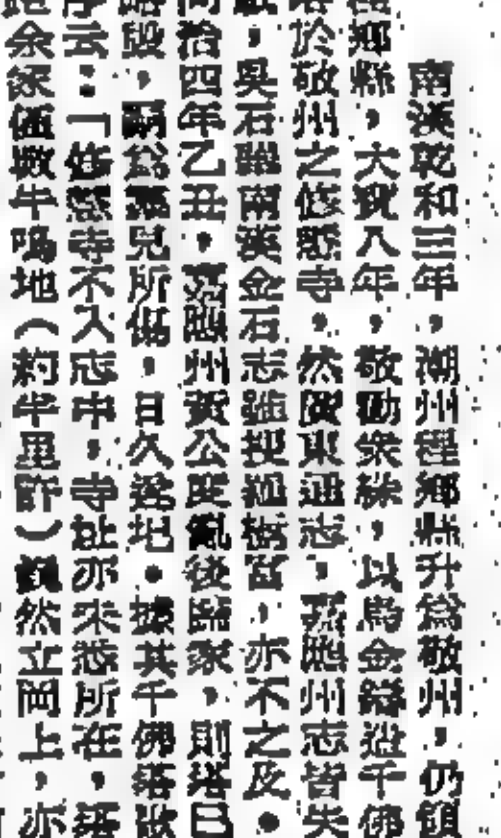 南漢乾和三年，潮州程鄉縣升為敬州，仍領
程鄉縣，大寶八年，敬勸衆緣，以烏金鑄造千佛
塔於敬州之修慧寺，然廣東通志，嘉應州志皆失
載，吳石華南漢金石志雖搜巖樹宮，亦不之及。
同治四年乙丑，嘉應州黃公度亂後歸家，則塔已
毀，為兒所傷，日久為圮。據其千佛塔歌
序云：「修慧寺不入志中，寺址亦未悉所在，塔
余家僅數牛鳴地（約半里許）巍然立岡上，亦